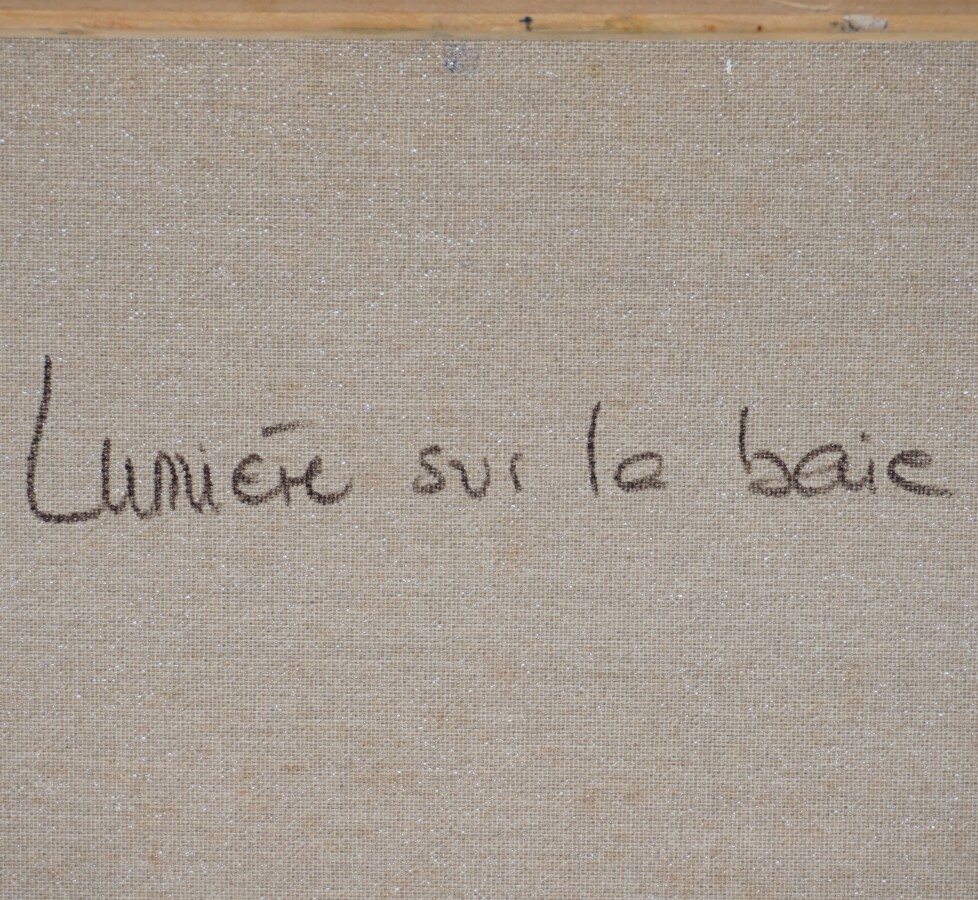 Lumière sur la baie